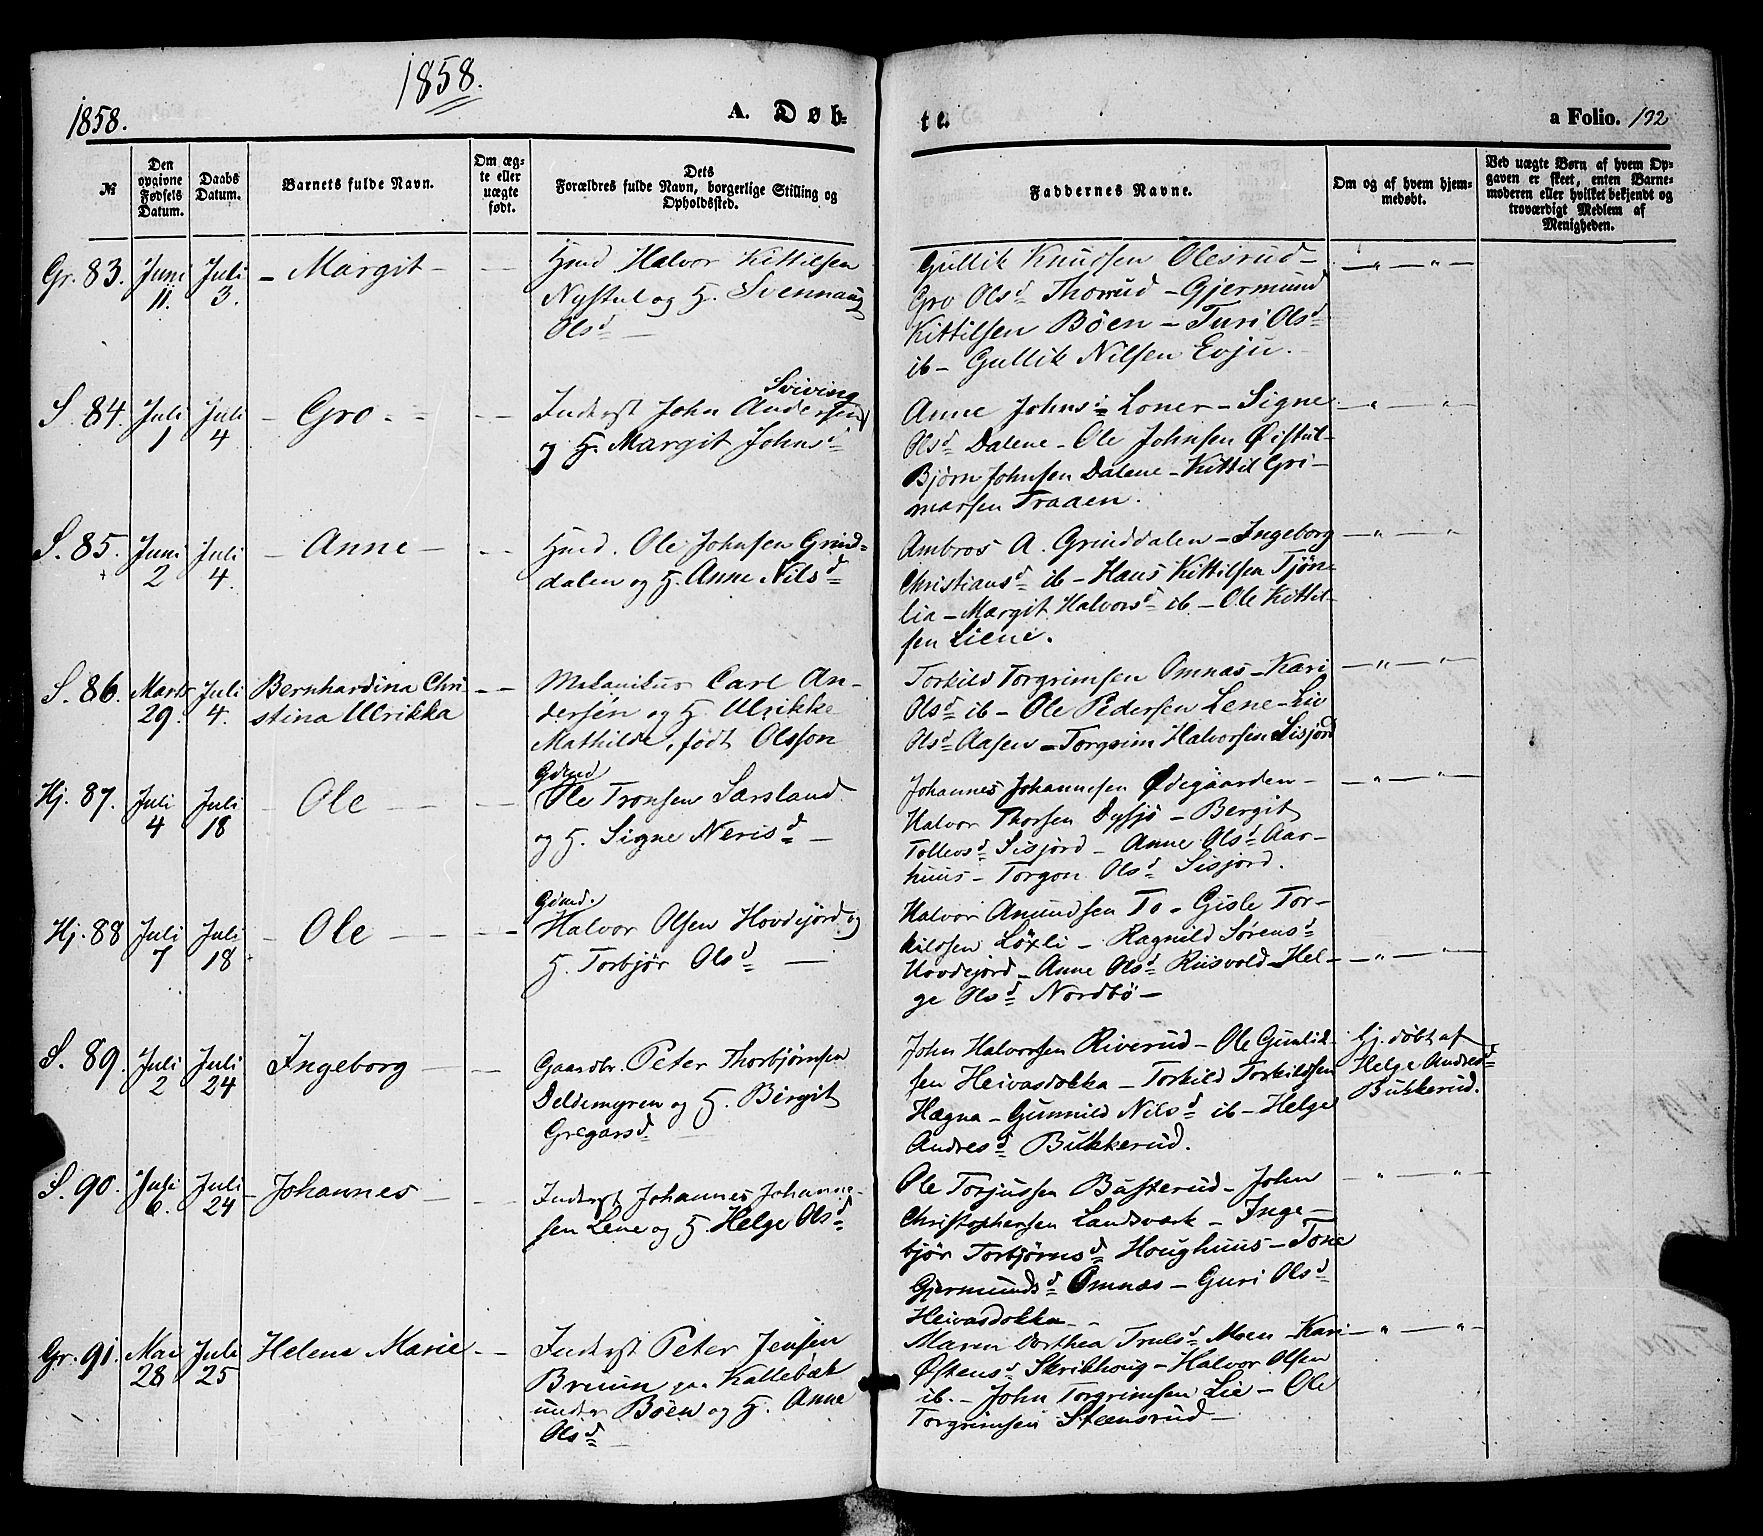 1858.
1858.
A. Døb-
te.
a Folio. 132
№
Den opgivne Fødsels Datum.
Daabs Datum.
Barnets fulde Navn.
Om ægte eller uægte født.
Dets Forældres fulde Navn, borgerlige Stilling og Opholdssted.
Faddernes Navne.
Om og af hvem hjemmedøbt.
Ved uægte Børn af hvem Opgaven er skeet, enten Barnemoderen eller hvilket bekjendt og troværdigt Medlem af Menigheden.
Gr. 83. Juni 11. Juli 3. – Margit –
Hmd Halvor Kittilsen
Nystul og H. Svennaug
Olsd –
Gullik Knudsen Olesrud –
Gro Olsd Thorrud – Gjermund
Kittilsen Böen – Turi Olsd
ib – Gullik Nilsen Evju.
S. 84. Juli 1 Juli 4 – Gro –
Sviving
Inderst John Andersen
og H. Margit Johnsd
Anne Johnsd Loner – Signe
Olsd Dalene – Ole Johnsen Øistul –
Bjørn Johnsen Dalene – Kittil Gri-
marsen Traaen.
S. 85. Juni 2 Juli 4. – Anne –
Hmd. Ole Johnsen Grind-
dalen og H. Anne Nilsd
Ambros A. Grinddalen – Ingeborg
Christiansd ib – Hans Kittilsen Tjöne
lia – Margit Halvorsd ib – Ole Kittil-
sen Liene.
S. 86. Marts 29. Juli 4. Bernhardina Chri
stina Ulrikka
Mekanikus Carl An-
dersén og H. Ulrikke
Mathilde, født Olsson
Torkild Torgrimsen Omnas – Kari
Olsd ib – Ole Pedersen Lene – Liv
Olsd Aasen – Torgrim Halvorsen Sisjord
Hj. 87. Juli 4 Juli 18 – Ole –
Gdmd
Ole Tronsen Sarsland
og H. Signe Nerisd –
Johannes Johannesen Ødegaarden –
Halvor Thorsen Dysjö – Bergit
Tollevsd Sisjord – Anne Olsd Aar-
huus – Torgon Olsd Sisjord.
Hj. 88 Juli 7 Juli 18 – Ole –
Gdmd.
Halvor Olsen Hovdejord og
H. Torbjør Olsd –
Halvor Amundsen To – Gisle Tor-
kildsen Löxli – Ragnild Sørensd
Hovdejord – Anne Olsd Riisvold – Hel-
ge Olsd Nordbö –
S. 89. Juli 2 Juli 24 Ingeborg –
Gaardbr. Peter Thorbjørnsen
Deldemyren og H. Birgit
Gregarsd
John Halvorsen Riverud – Ole Gunlik-
sen Heivasdokka – Torkild Torkildsen
Hægna – Gunnild Nilsd ib – Helge
Andresd Bukkerud.
Hj. døbt af
Helge Andresd
Bukkerud.
S. 90. Juli 6. Juli 24 – Johannes –
Inderst Johannes Johanne-
sen Lene og H. Helge Olsd
Ole Torjussen Busterud – John
Christophersen Landsværk – Inge –
bjør Torbjørnsd Houghuus – Tone
Gjermundsd Omnæs – Guri Olsd
Heivasdokka –
Gr. 91. Mai 28 Juli 25 Helene Marie –
Inderst Peter Jensen
Bruun paa Kallebæk
under Böen og H. Anne
Olsd
Maren Dorthea Trulsd Moen – Kari
Östensd Skrikhoug – Halvor Olsen
ib. – John Torgrimsen Lie – Ole
Torgrimsen Steensrud –